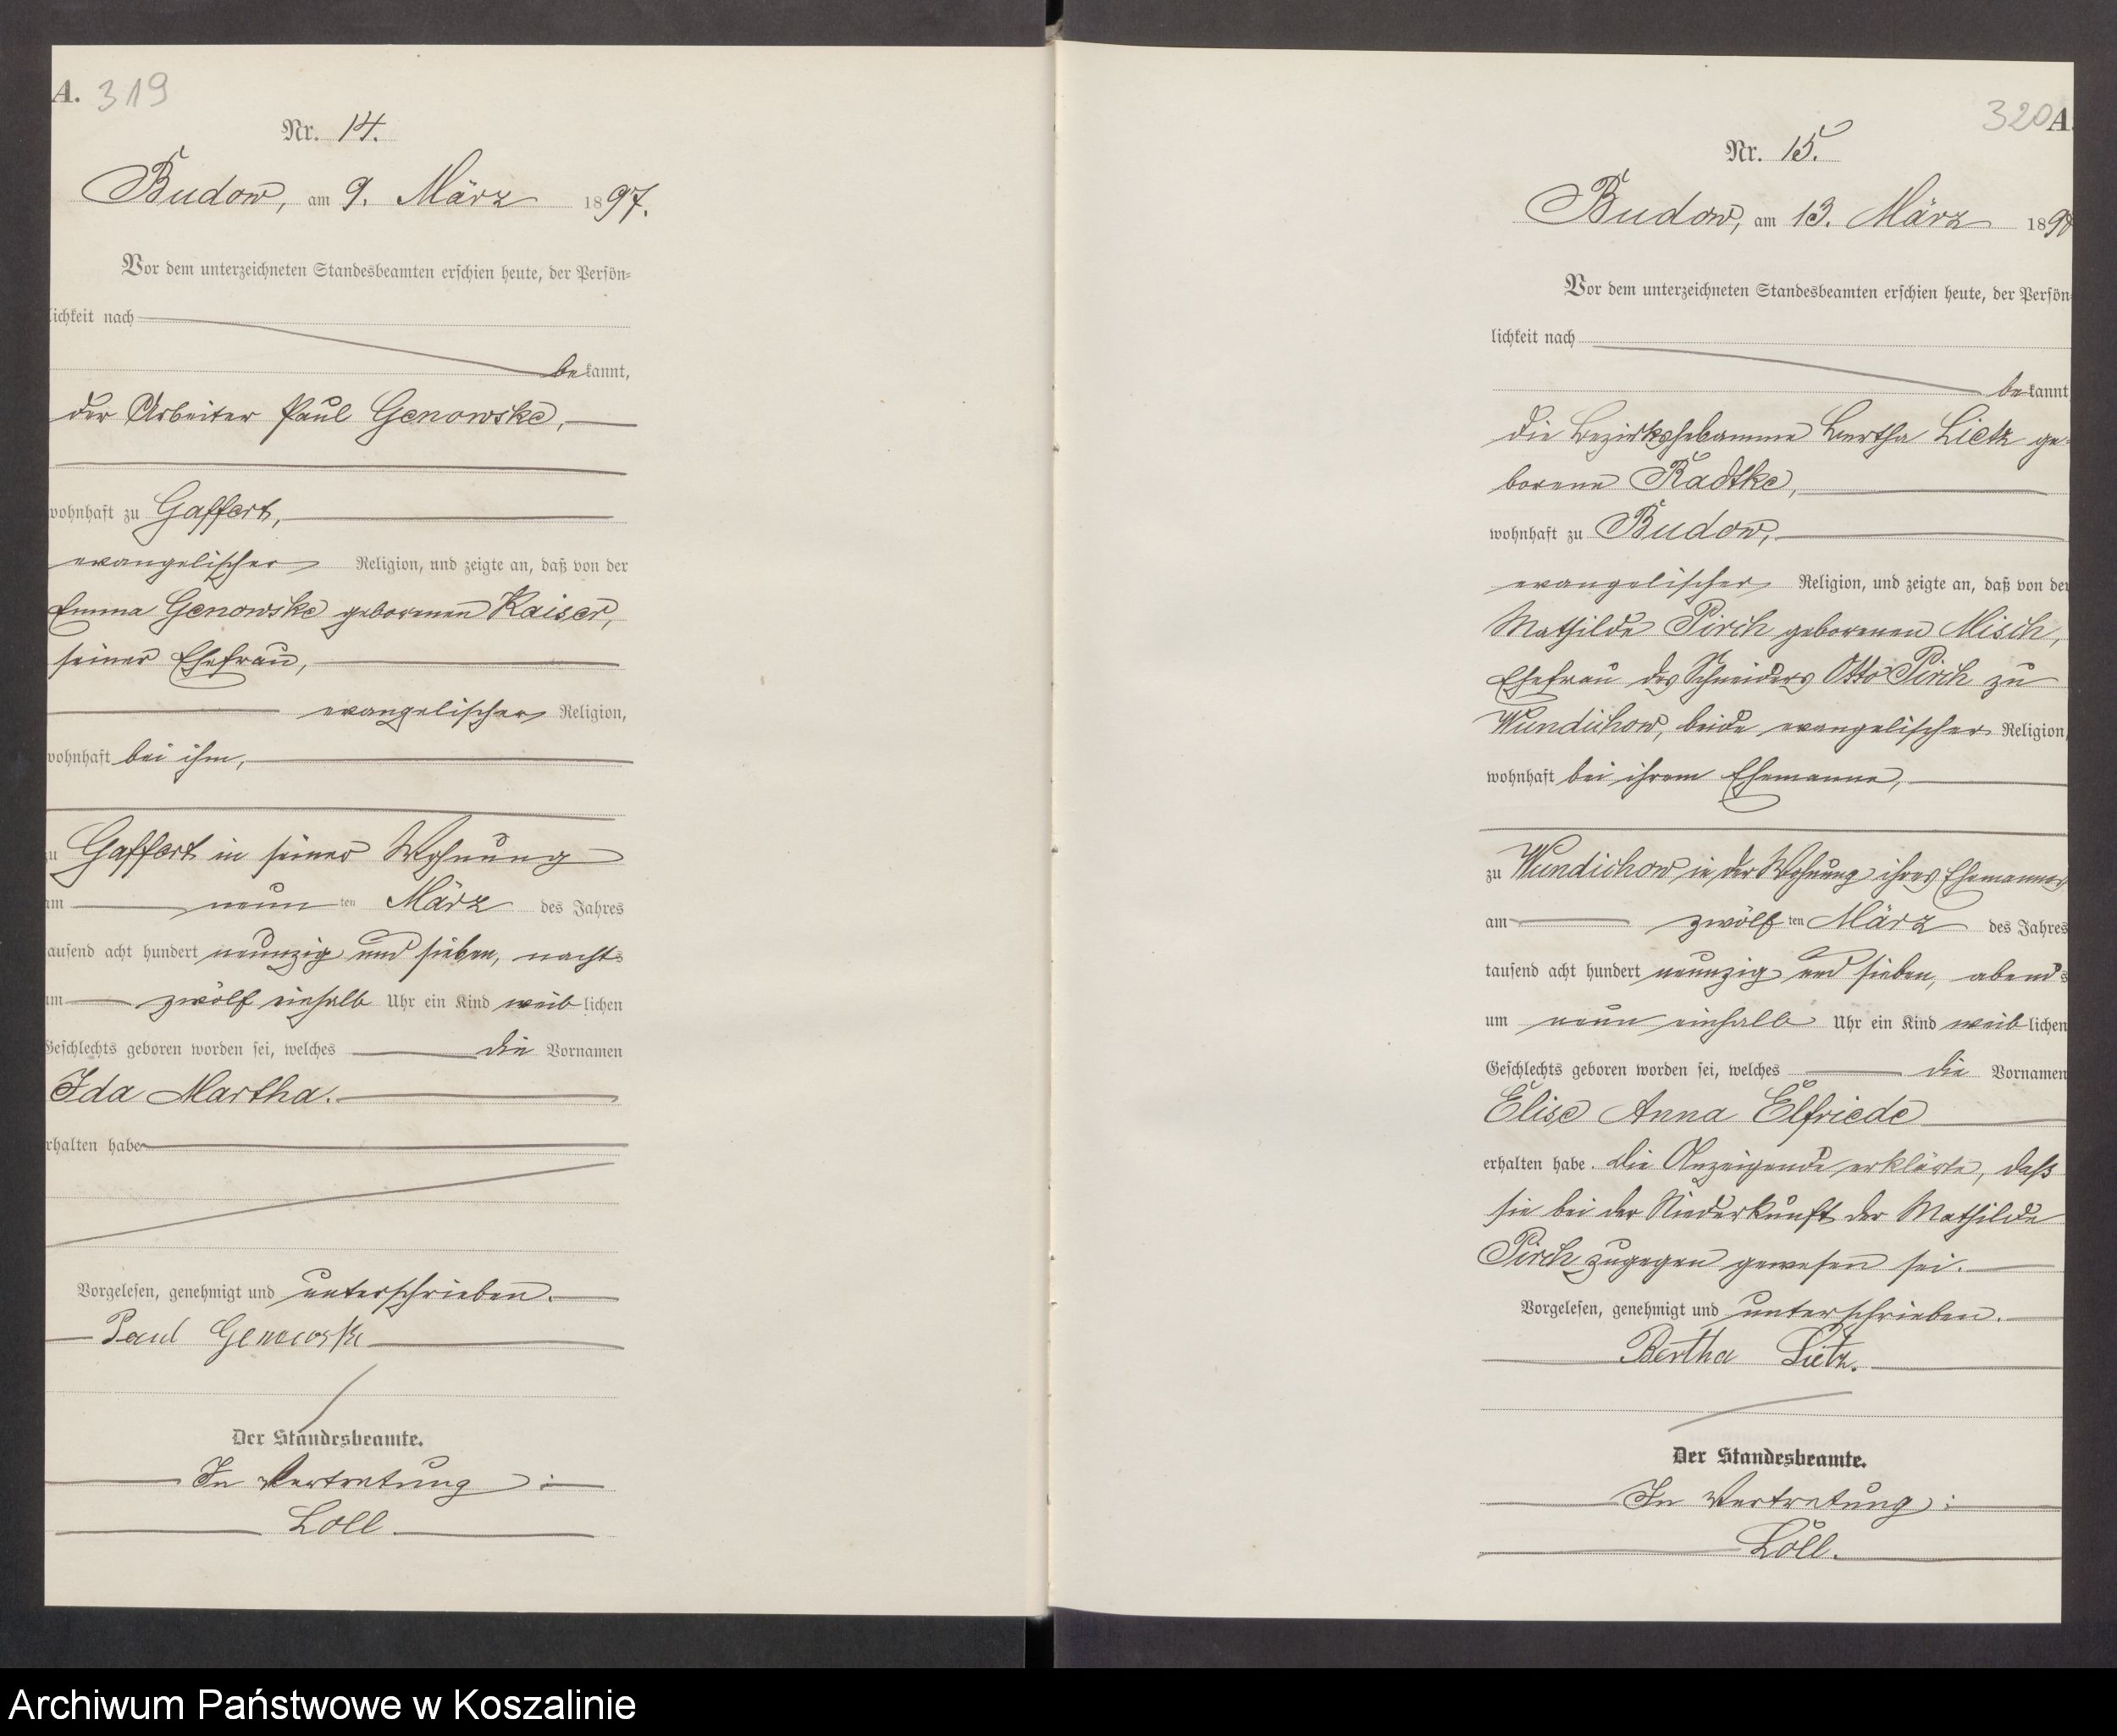 A. 319
Nr. 14.
Budow, am 9. März 1897.
Vor dem unterzeichneten Standesbeamten erschien heute, der Persön-
lichkeit nach
bekannt,
der Arbeiter Paul Genowske,
wohnhaft zu Gaffert,
evangelischer Religion, und zeigte an, daß von der
Emma Genowske geborenen Kaiser,
seiner Ehefrau,
evangelischer Religion,
wohnhaft bei ihm,
zu Gaffert in seiner Wohnung
am neun ten März des Jahres
tausend acht hundert neunzig und sieben, nachts
um zwölf einhalb Uhr ein Kind weiblichen
Geschlechts geboren worden sei, welches die Vornamen
Ida Martha.
erhalten habe
Vorgelesen, genehmigt und unterschrieben.
Paul Genowske
Der Standesbeamte.
In Vertretung:
Loll.
320 A.
Nr. 15.
Budow, am 13. März 1897
Vor dem unterzeichneten Standesbeamten erschien heute, der Persön-
lichkeit nach
bekannt
die Bezirkshebamme Bertha Lietz ge-
borene Radtke,
wohnhaft zu Budow,
evangelischer Religion, und zeigte an, daß von der
Mathilde Pirch geborenen Misch,
Ehefrau des Schneiders Otto Pirch zu
Wundichow, beide evangelischer Religion,
wohnhaft bei ihrem Ehemanne,
zu Wundichow in der Wohnung ihres Ehemannes
am zwölf ten März des Jahres
tausend acht hundert neunzig und sieben, abends
um neun einhalb Uhr ein Kind weiblichen
Geschlechts geboren worden sei, welches die Vornamen
Elise Anna Elfriede
erhalten habe. Die Anzeigende erklärte, daß
sie bei der Niederkunft der Mathilde
Pirch zugegen gewesen sei.
Vorgelesen, genehmigt und unterschrieben.
Bertha Lietz.
Der Standesbeamte.
In Vertretung:
Loll.
Archiwum Państwowe w Koszalinie